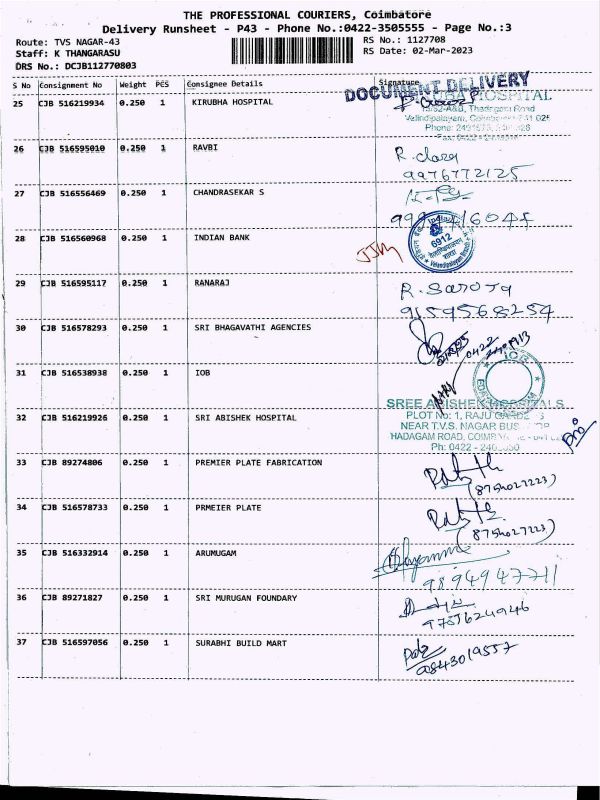 THE PROFESSIONAL COURIERS, Coimbatore
Delivery Runsheet - P43 - Phone No.:0422-3505555 - Page No.:3
Route: TVS NAGAR-43
RS No.: 1127708
Staff: K THANGARASU
RS Date: 02-Mar-2023
DRS No.: DCJB112770803
S No Consignment No Weight PCS Consignee Details Signature
DOCUMENT DELIVERY
25 CJB 516219934 0.250 1 KIRUBHA HOSPITAL
HOSPITAL
Thadagam Road
Velandipalayam, Coimbatore
Phone:
26 CJB 516595010 0.250 1 RAVBI
R. clara
9976772125
27 CJB 516556469 0.250 1 CHANDRASEKAR S
28 CJB 516560968 0.250 1 INDIAN BANK
6912
29 CJB 516595117 0.250 1 RANARAJ
R. Saroja
9159568254
30 CJB 516578293 0.250 1 SRI BHAGAVATHI AGENCIES
0422
31 CJB 516538938 0.250 1 IOB
SREE ABISHEK HOSPITALS
PLOT No: 1, RAJU
NEAR T.V.S. NAGAR BUS
32 CJB 516219926 0.250 1 SRI ABISHEK HOSPITAL
HADAGAM ROAD,
Ph: 0422 -
33 CJB 89274806 0.250 1 PREMIER PLATE FABRICATION
(8754027223)
34 CJB 516578733 0.250 1 PRMEIER PLATE
(8754027223)
35 CJB 516332914 0.250 1 ARUMUGAM
9894947711
36 CJB 89271827 0.250 1 SRI MURUGAN FOUNDARY
37 CJB 516597056 0.250 1 SURABHI BUILD MART
9843019557